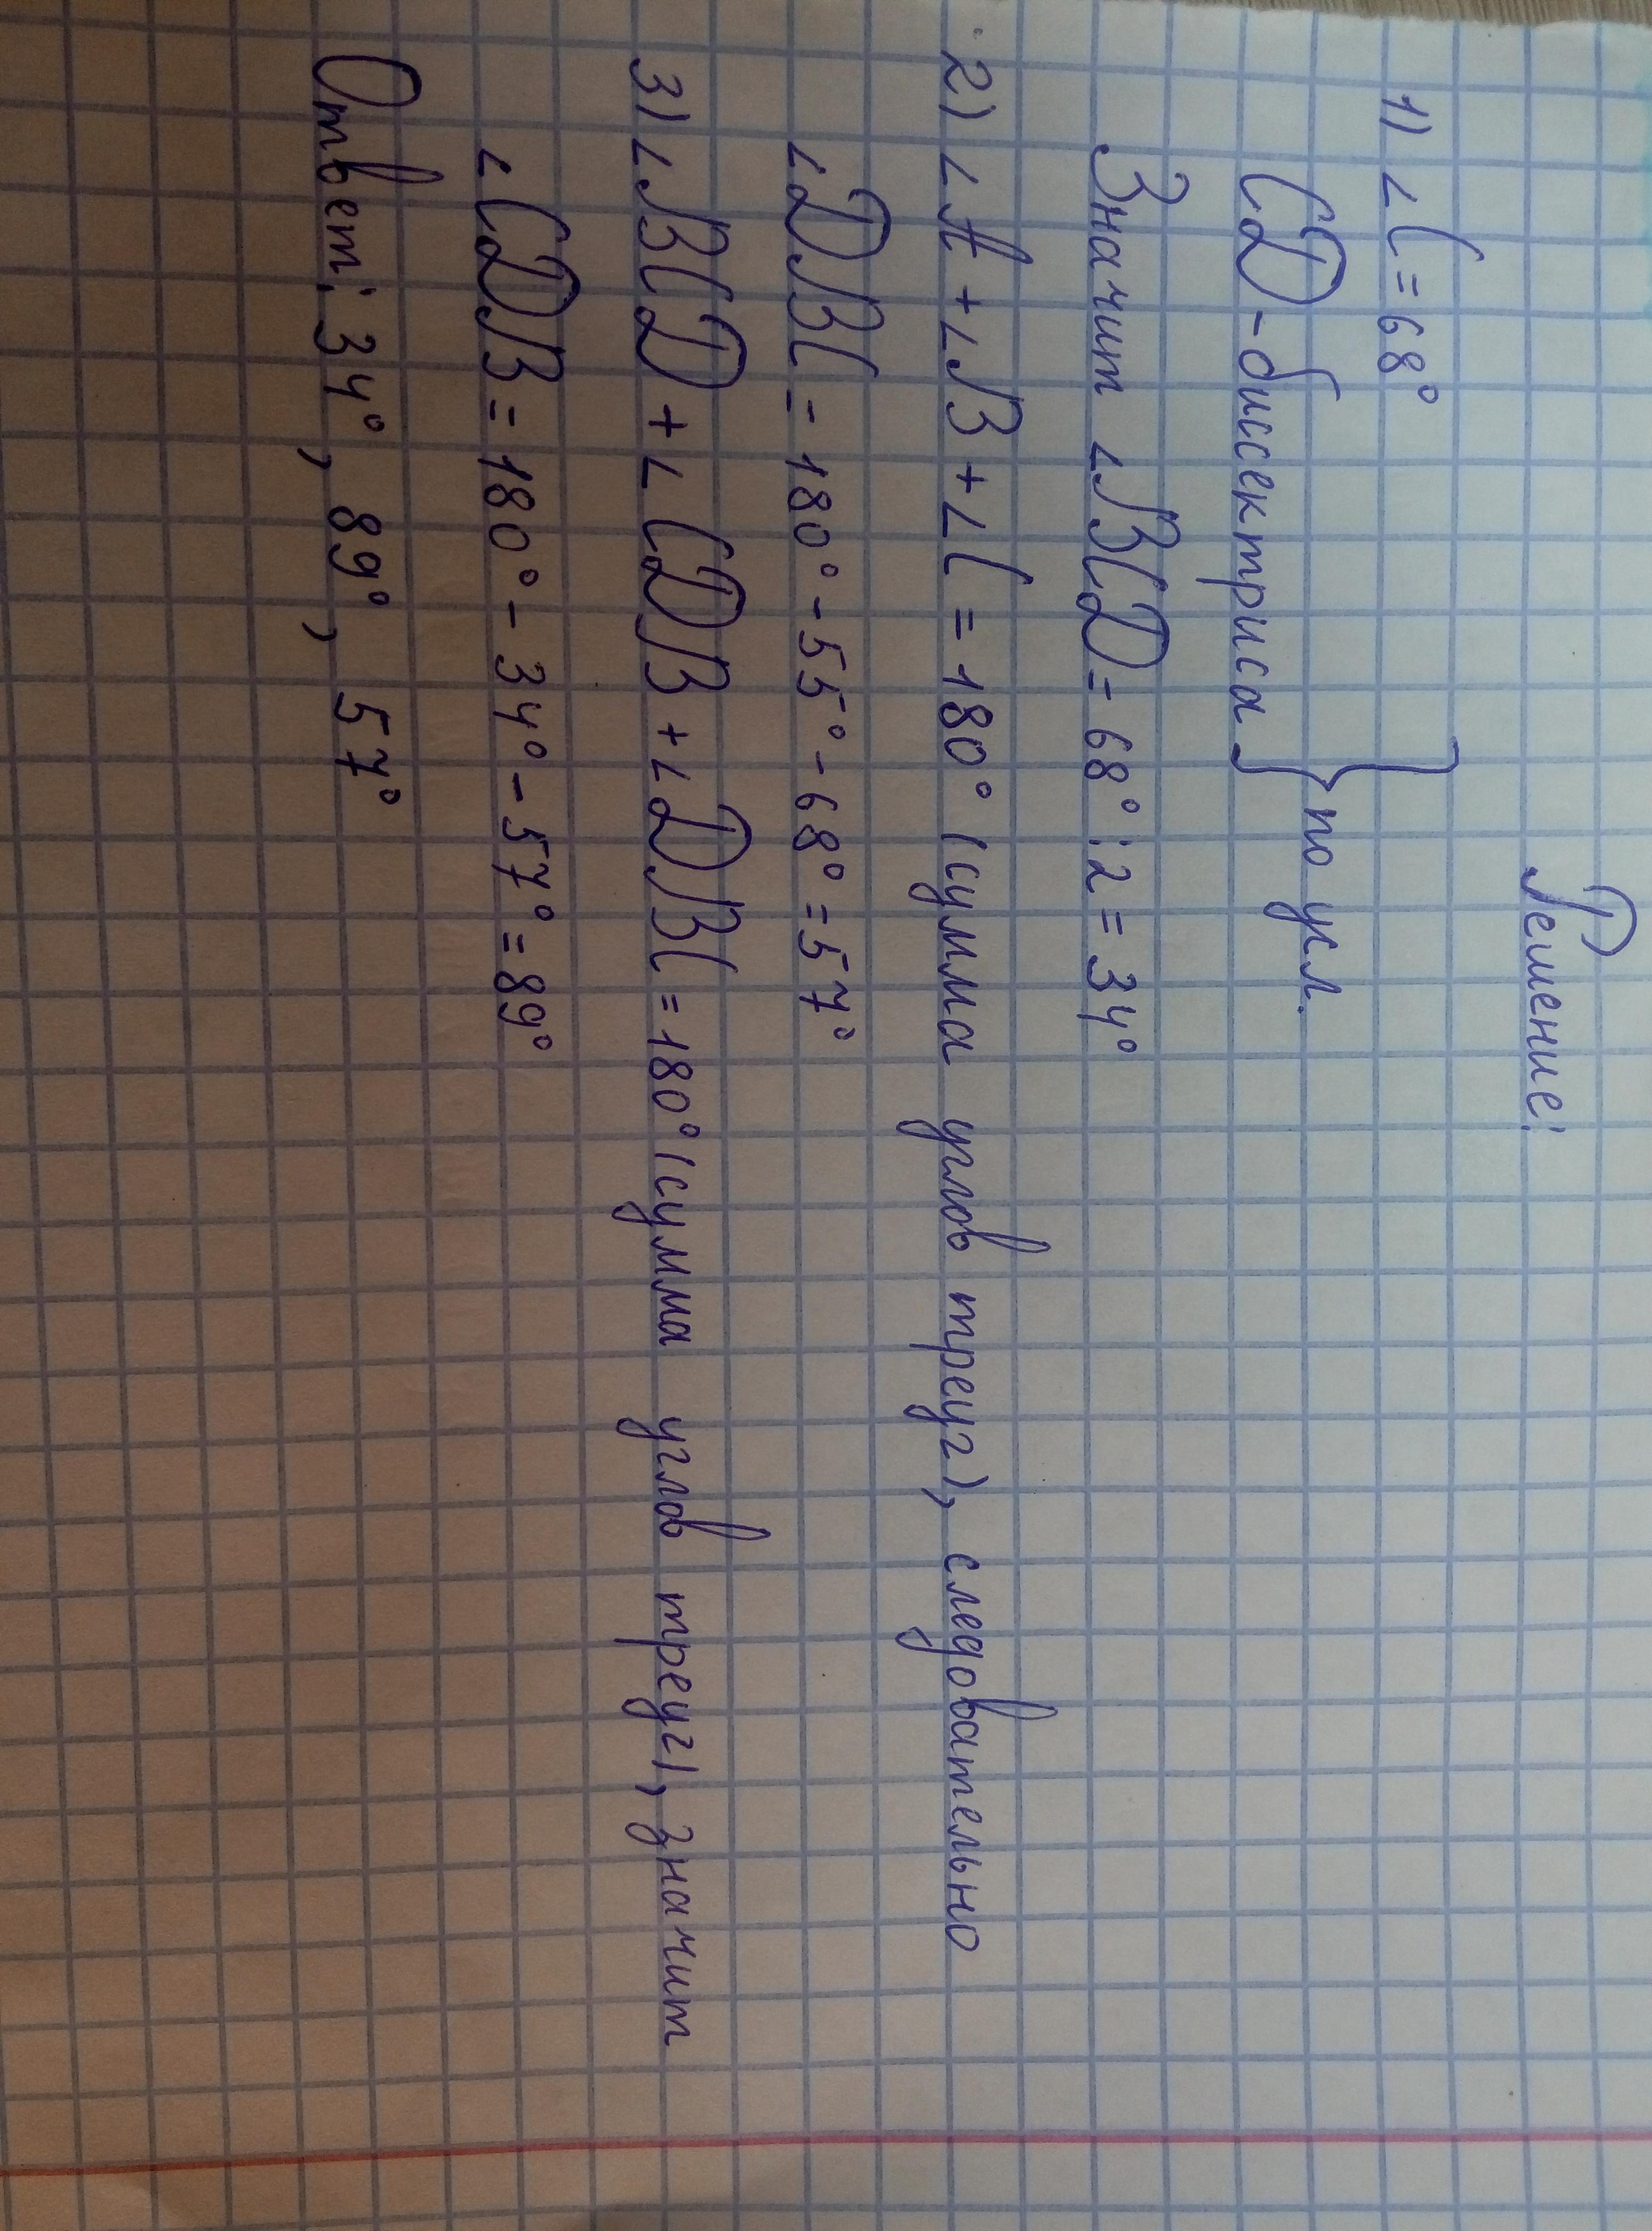 Решение:
1) ∠C = 68°
CD - биссектриса } по усл.
Значит ∠BCD = 68° : 2 = 34°
2) ∠A + ∠B + ∠C = 180° (сумма углов треуг), следовательно
∠DBC = 180° - 55° - 68° = 57°
3) ∠BCD + ∠CDB + ∠DBC = 180° (сумма углов треуг), значит
∠CDB = 180° - 34° - 57° = 89°
Ответ: 34°, 89°, 57°